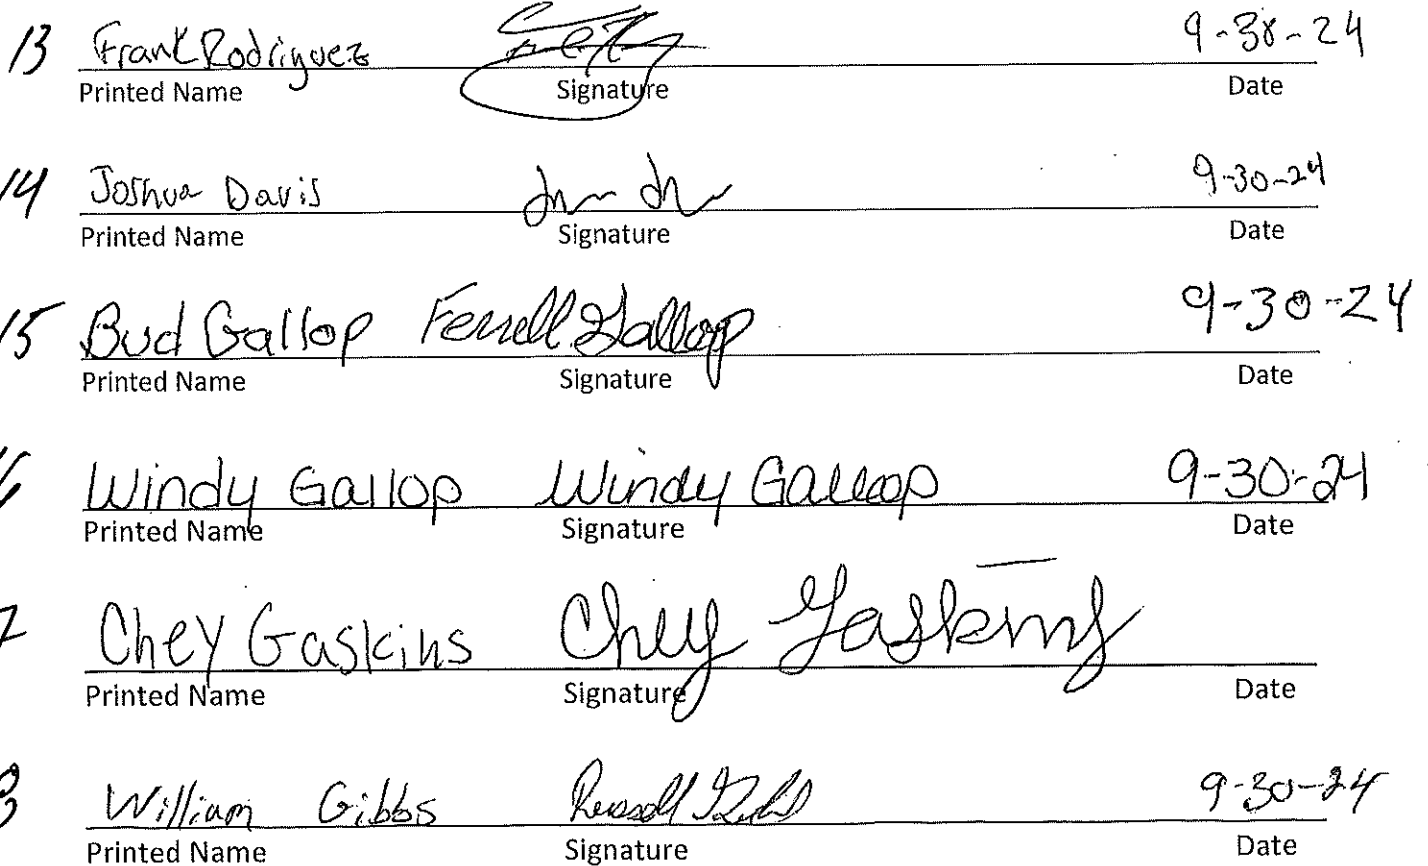 13 Frank Rodriguez 9-30-24
Printed Name Signature Date
14 Joshua Davis 9-30-24
Printed Name Signature Date
15 Bud Gallop Ferrell Gallop 9-30-24
Printed Name Signature Date
6 Windy Gallop Windy Gallop 9-30-24
Printed Name Signature Date
7 Chey Gaskins Chey Gaskins
Printed Name Signature Date
8 William Gibbs Russell Gibbs 9-30-24
Printed Name Signature Date